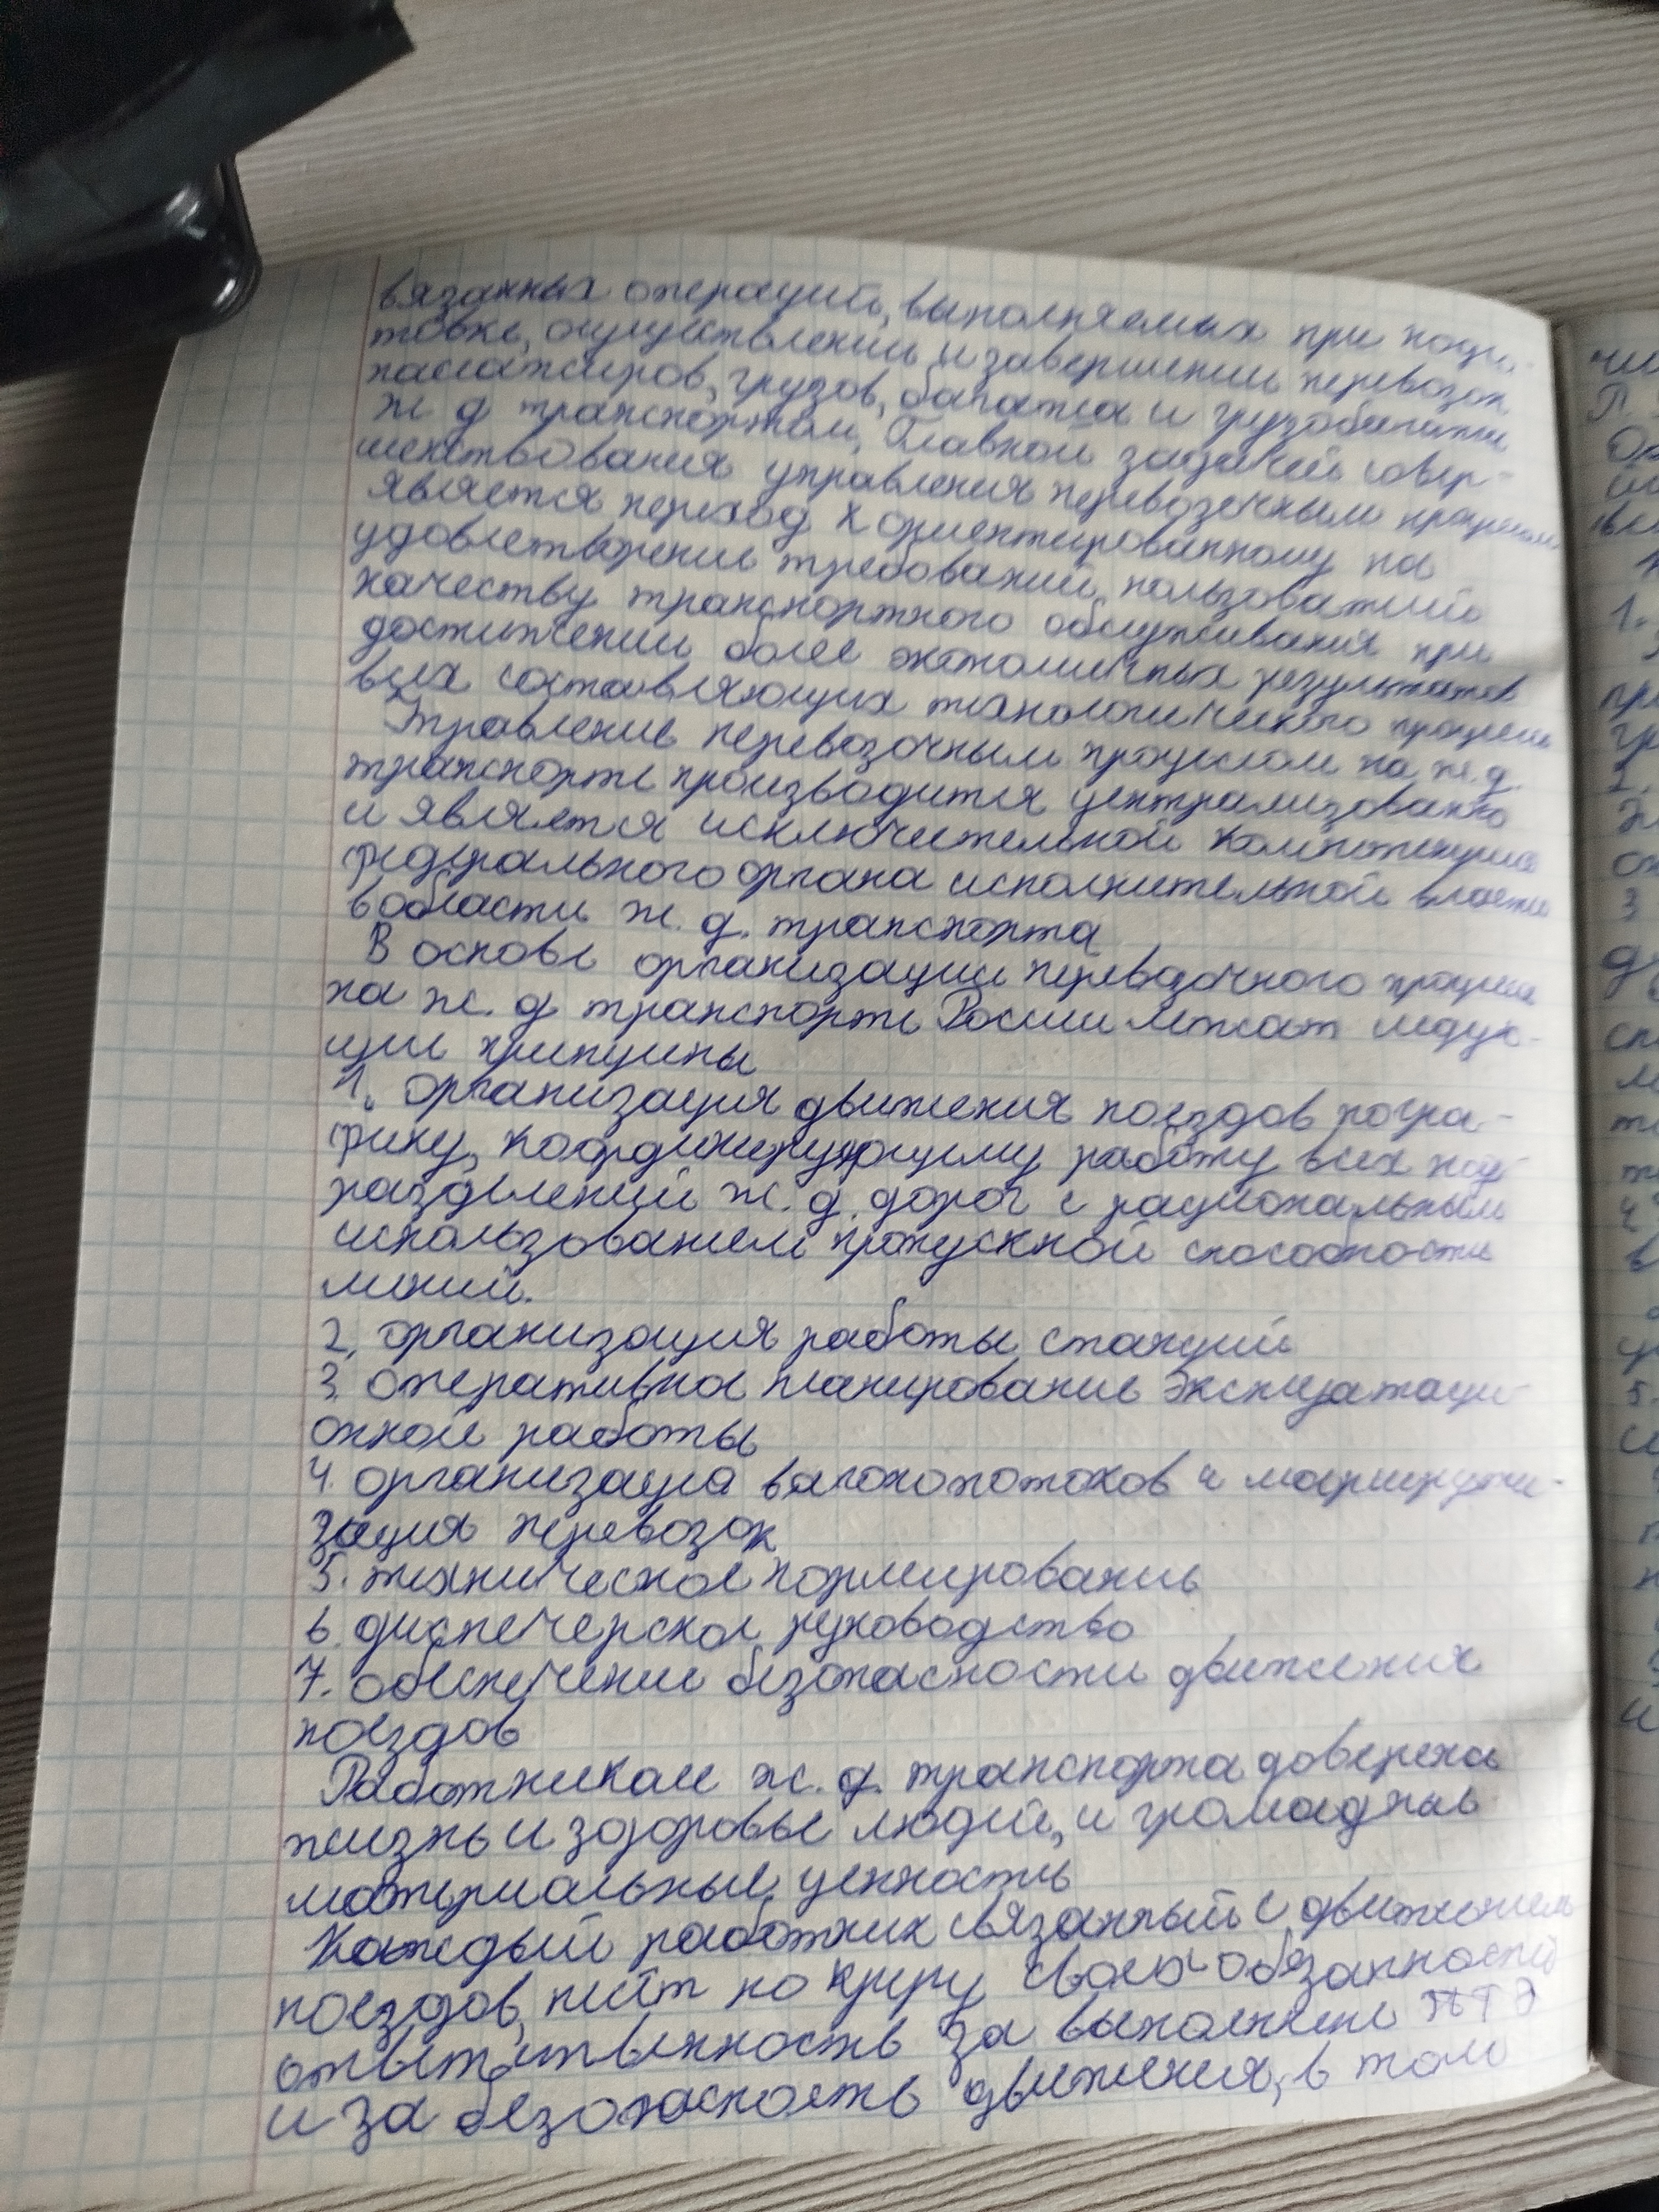 вязанных операций, выполняемых при подго-
товке, осуществлении и завершении перевозок
пассажиров, грузов, багажа и грузобагажа
ж д транспортом, Главной задачей совер-
шенствования управления перевозочным процессом
является переход к ориентированному на
удовлетворение требований, пользователей
качеству транспортного обслуживания при
достижении более экономичных результатов
всех составляющих технологического процесса
Управление перевозочным процессом на ж.д.
транспорте производится централизованно
и является исключительной компетенцией
федерального органа исполнительной власти
в области ж. д. транспорта
В основе организации перевозочного процесса
на ж. д транспорте России лежат следую-
щие принципы
1. организация движения поездов по гра-
фику, координирующему работу всех под
разделений ж. д. дорог с рациональным
использованием пропускной способности
линий.
2. организация работы станций
3. оперативное планирование эксплуатаци
онной работы
4. организация вагонопотоков и маршрути-
зация перевозок
5. техническое нормирование
6. диспетчерское руководство
7. обеспечение безопасности движения
поездов
Работникам ж. д. транспорта доверена
жизнь и здоровье людей, и громадные
материальные ценность
Каждый работник связанный с движением
поездов, несёт по кругу своих обязанностей
ответственность за выполнение ПТЭ
и за безопасность движения, в том